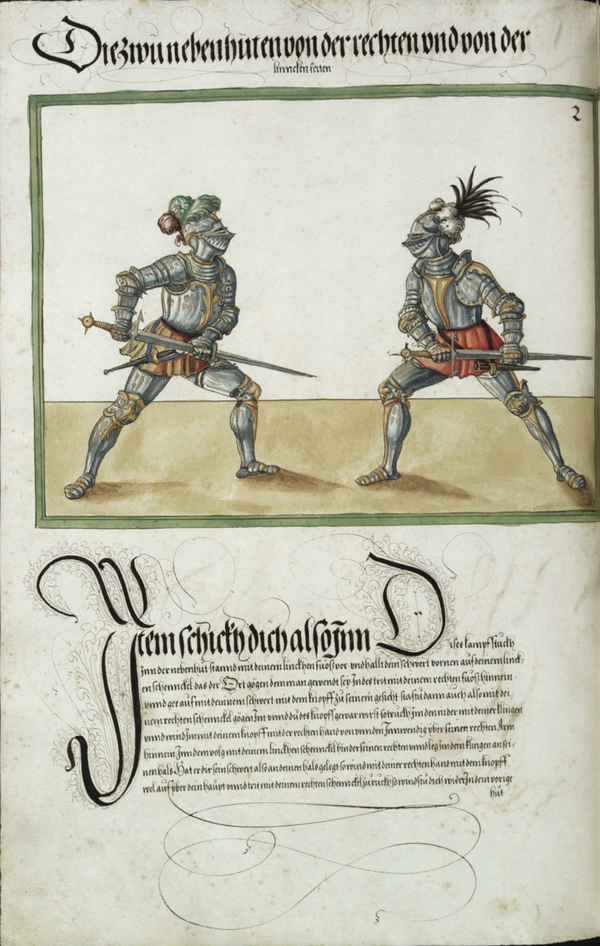 Die zwu nebenhuten von der rechten vnd von der
linncken seiten
2
Item schickh dich also Inn Dises kampfstuckh
Inn der nebenhut stannd mit deinem linckhen fuoß vor vnd hallt dein schwert vornen auf deinem linck,
en schennckel das der Ort gögen dem man gewendt sey Indes trit mit deinem rechten fuoß hinnein
vnnd gee auf mit deinem schwert mit dem knopff zu seinem gesicht stast du dann auch also mit dei
nem rechten schennckel gögen Im vnnd du des knopfs gewar wirst so truckh Im den nider mit deiner klingen
vnnd wind Im mit deinem knopff mit der rechten hand von vnnden Inwendig yber seinen rechten Arm
hinnein Inn dem volg mit deinem linckhen schennckel hinder seinen rechten vnnd leg Im dein klingen an sei,
nen hals Hat er dir sein schwert also an deinen hals gelegt so wind mit deiner rechten hand mit dem knopff
wol auf yber dein haupt vnnd trit mit deinem rechten schennckel zuruckh so windstu dich wider In dein vorige
hut